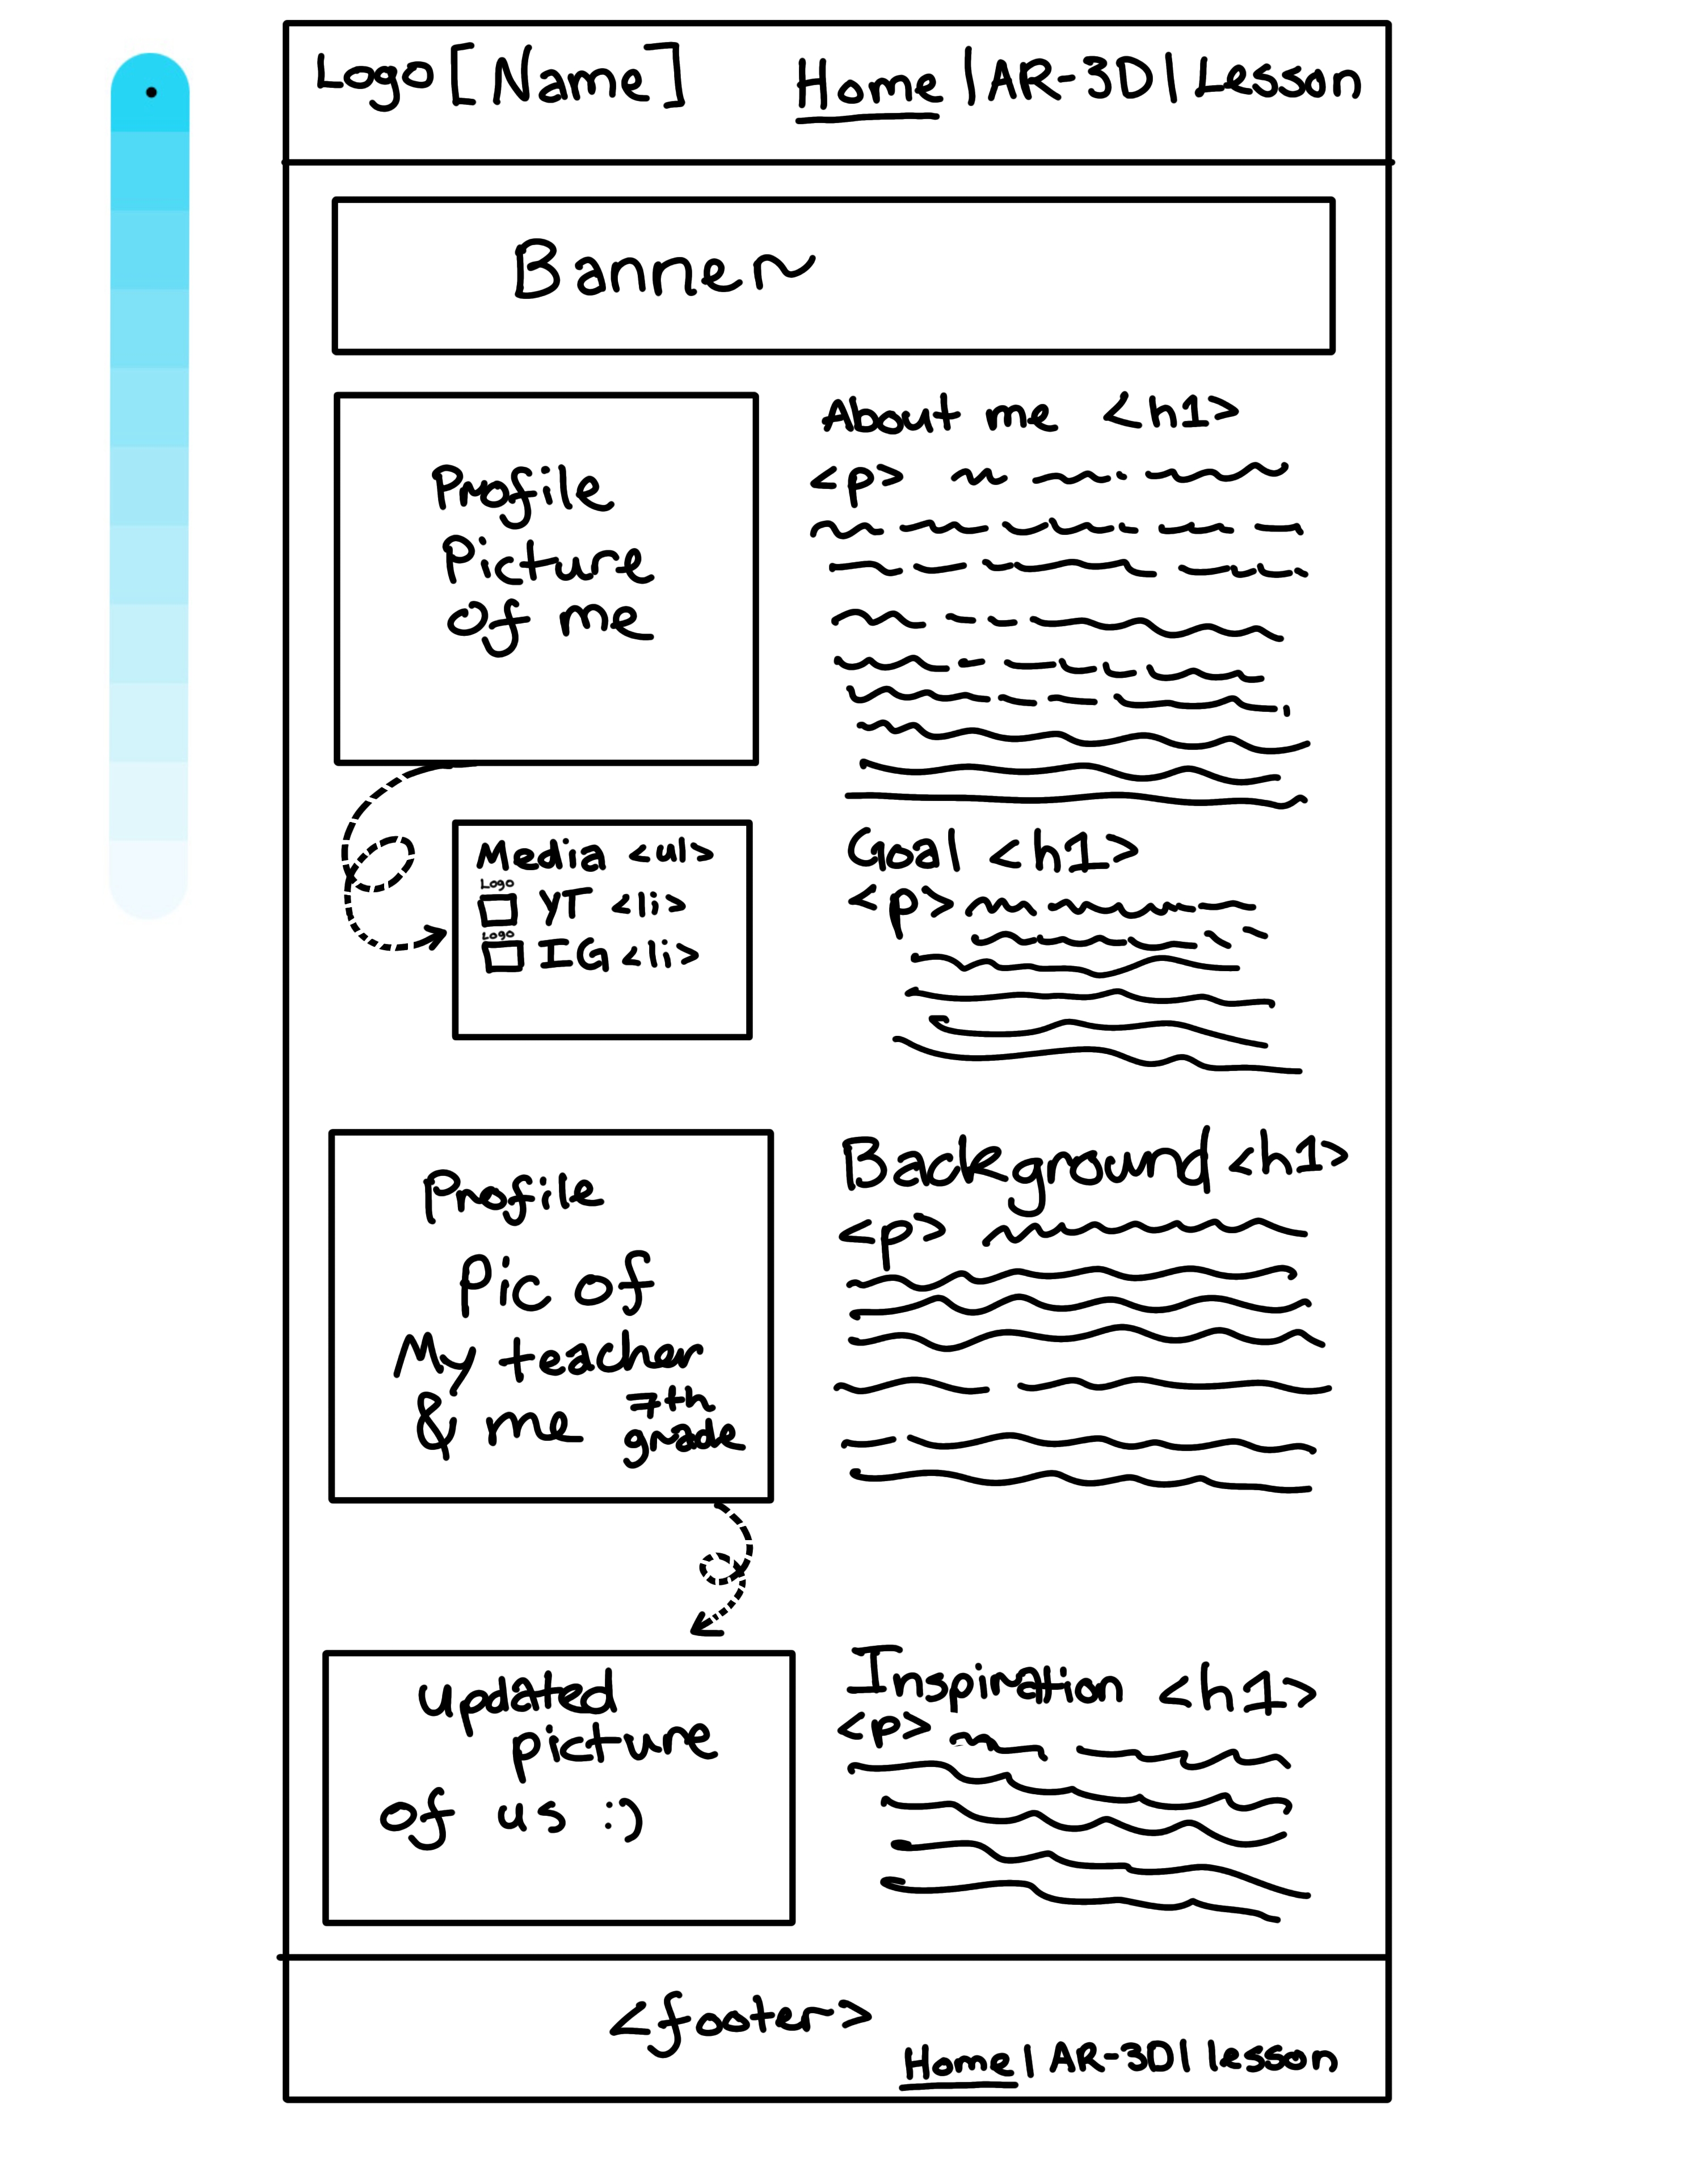 Logo [Name] Home | AR-3D | Lesson
Banner
Profile
Picture
of me
About me <h1>
<p>
Media <ul>
Logo
YT <li>
Logo
IG <li>
Goal <h1>
<p>
Profile
Pic of
My teacher
& me 7th
grade
Background <h1>
<p>
updated
picture
of us :)
Inspiration <h1>
<p>
<footer>
Home | AR-3D | lesson